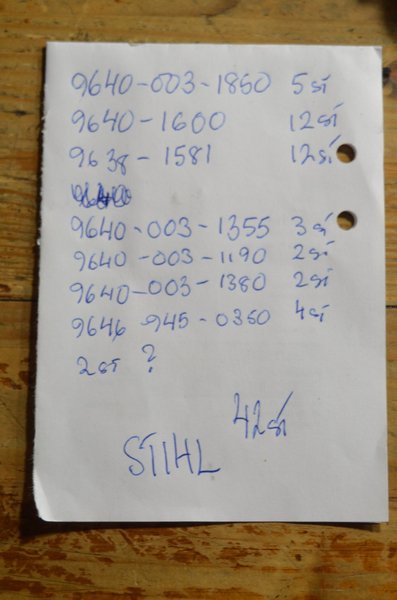 9640-003-1850 5št
9640-1600 12št
9638-1581 12št
9640-003-1355 3št
9640-003-1190 2št
9640-003-1380 2št
9646 945-0350 4št
2št ?
42št
STIHL